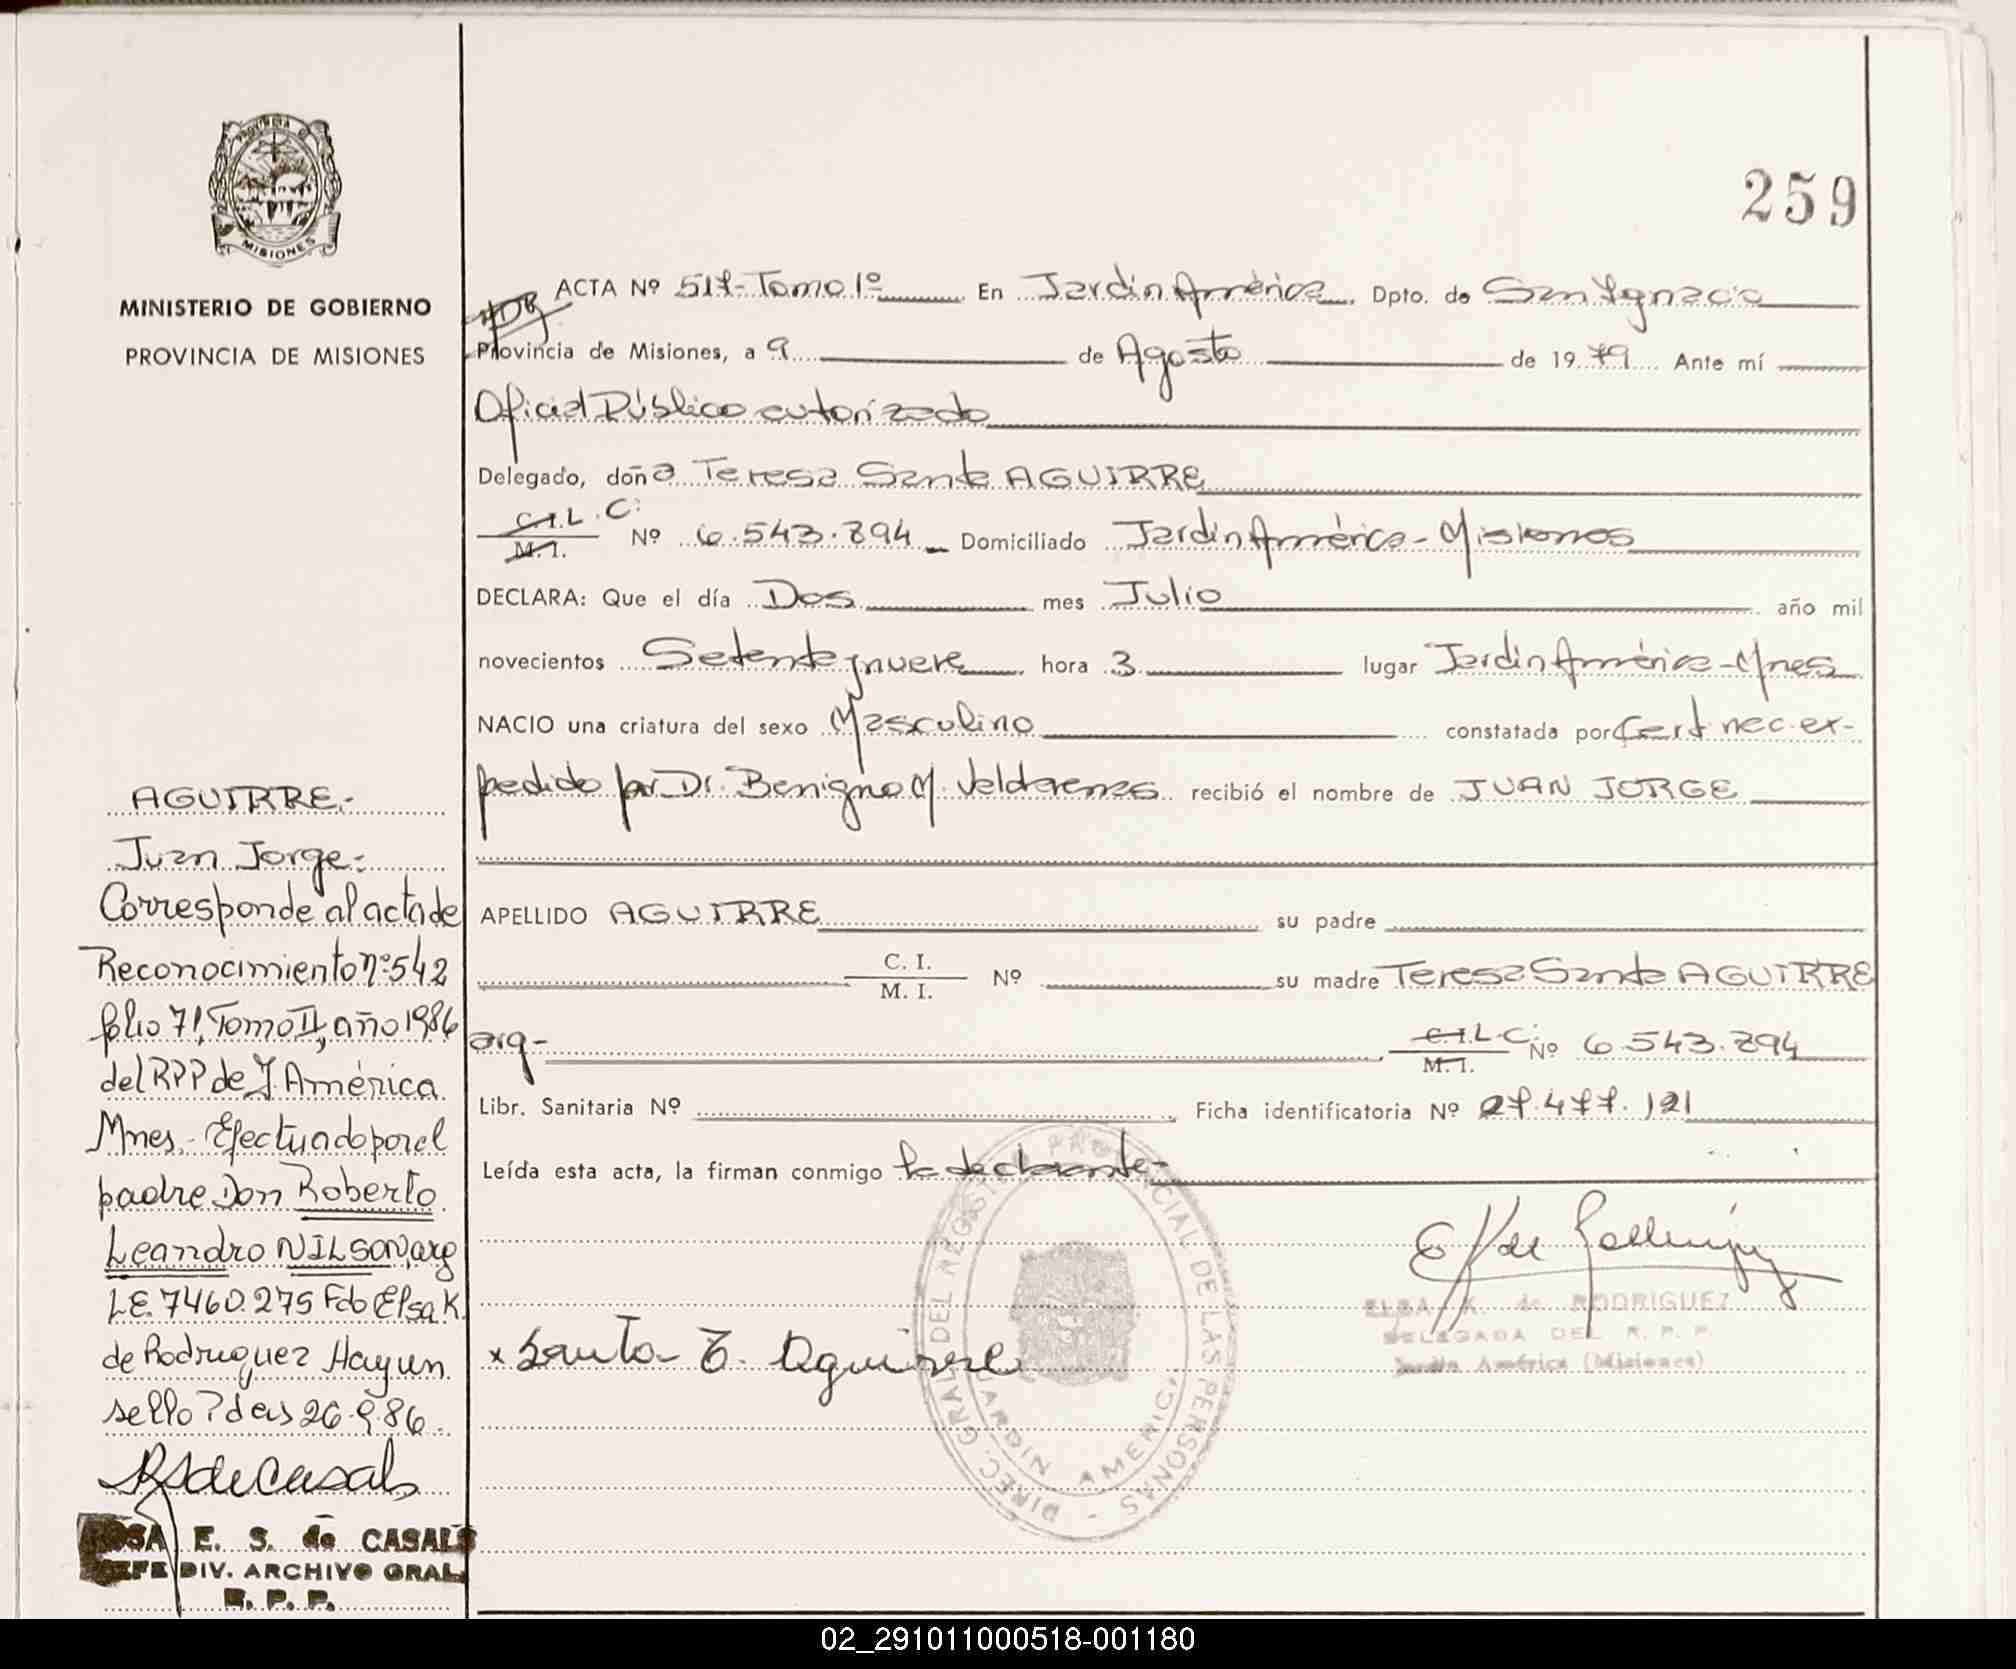 PROVINCIA DE
MISIONES
MINISTERIO DE GOBIERNO
PROVINCIA DE MISIONES
259
ACTA Nº 517-Tomo 1º En Jardín América Dpto. de San Ignacio
Provincia de Misiones, a 9 de Agosto de 1979 Ante mí
Oficial Público autorizado
Delegado, doña Teresa Santa AGUIRRE
C.I. L.C. M.I. Nº 6.543.894 Domiciliado Jardín América - Misiones
DECLARA: Que el día Dos mes Julio año mil
novecientos Setenta y nueve hora 3 lugar Jardín América - Mnes
NACIO una criatura del sexo Masculino constatada por Cert nac. ex-
pedido por Dr. Benigno M. Valdarenas recibió el nombre de JUAN JORGE
APELLIDO AGUIRRE su padre
C. I. M. I. Nº su madre Teresa Santa AGUIRRE
arg- C.I. L.C. M.I. Nº 6.543.894
Libr. Sanitaria Nº Ficha identificatoria Nº 27.477.121
Leída esta acta, la firman conmigo la declarante-
ELSA K. de RODRIGUEZ
DELEGADA DEL R. P. P
Jardín América (Misiones)
x Santa T. Aguirre
DIREC. GRAL DEL REGISTRO PROVINCIAL DE LAS PERSONAS
JARDIN AMERICA
AGUIRRE.-
Juan Jorge.-
Corresponde al acta de
Reconocimiento nº 542
folio 71, Tomo II, año 1986
del RPP de J. América
Mnes.- Efectuado por el
padre Don Roberto
Leandro NILSON, arg
L.E. 7460.275 Fdo Elsa K.
de Rodriguez Hay un
sello Pdas 26.9.86.
RS de Casals
ROSA E. S. de CASALS
JEFE DIV. ARCHIVO GRAL.
R. P. P.
02_291011000518-001180